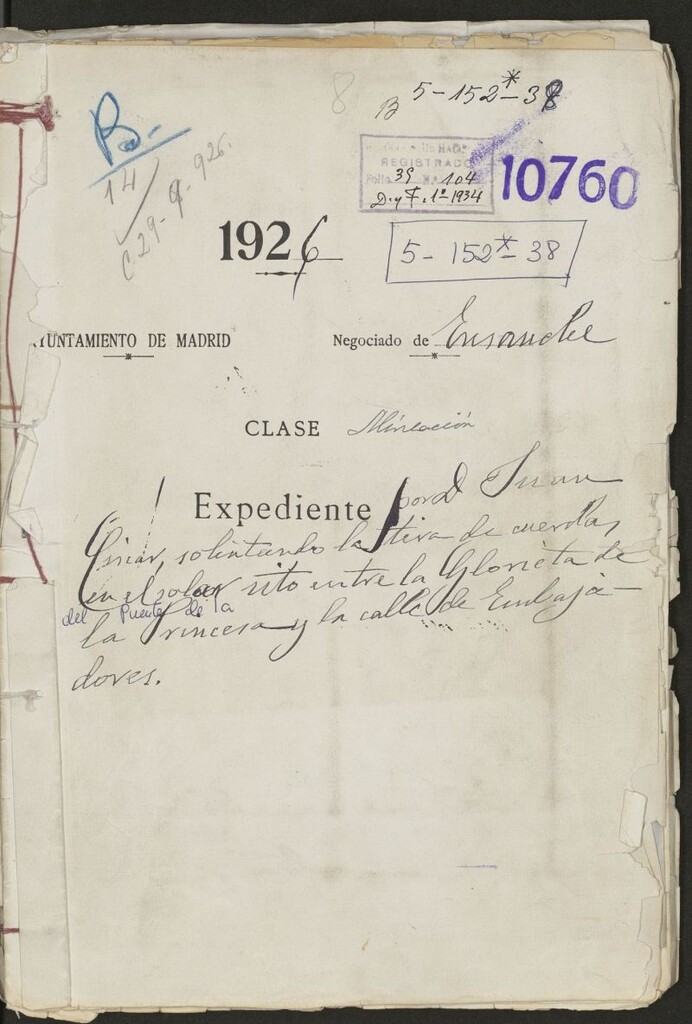 8
B 5-152*-38
B.-
14
C 29-9-926.
REGISTRADO
Folio 39 N.º 104
D. y F. 1º-1934
10760
1926
5-152*-38
AYUNTAMIENTO DE MADRID
Negociado de Ensanche
CLASE Alineación
Expediente por D Juan
solicitando la tira de cuerdas,
en el solar sito entre la Glorieta de
del Puente de la
la Princesa y la calle de Embaja-
dores.